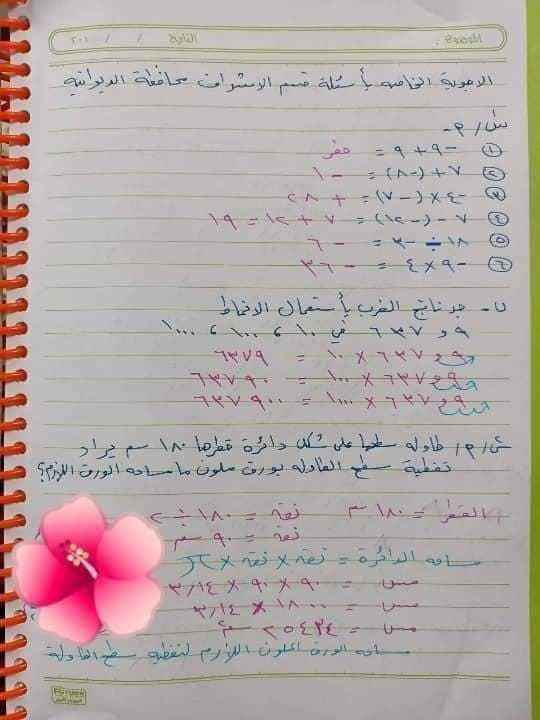 الموضوع: التاريخ / / ٢٠١
الاجوبة الخاصة بأسئلة قسم الاشراف محافظة الديوانية
س١/ م-
① -٩ + ٩ = صفر
② ٧ + (-٨) = -١
③ -٤ × (-٧) = + ٢٨
④ ٧ - (-١٢) = ٧ + ١٢ = ١٩
⑤ ١٨ ÷ -٣ = -٦
⑥ -٩ × ٤ = -٣٦
ب- جد ناتج الضرب بأستعمال الانماط
٦٣٧و٩ في ١٠ ، ١٠٠ ، ١٠٠٠
٦٣٧و٩ × ١٠ = ٦٣٧٩
٦٣٧و٩ × ١٠٠ = ٦٣٧٩٠
٦٣٧و٩ × ١٠٠٠ = ٦٣٧٩٠٠
س/٢ م/ طاولة سطحها على شكل دائرة قطرها ١٨٠ سم يراد
تغطية سطح الطاولة بورق ملون ما مساحة الورق اللازم؟
القطر = ١٨٠ سم نقه = ١٨٠ ÷ ٢
نقه = ٩٠ سم
مساحة الدائرة = نقه × نقه × π
مس = ٩٠ × ٩٠ × ٣/١٤
مس = ٨١٠٠ × ٣/١٤
مس = ٢٥٤٣٤ سم²
مساحة الورق الملون اللازم لتغطية سطح الطاولة